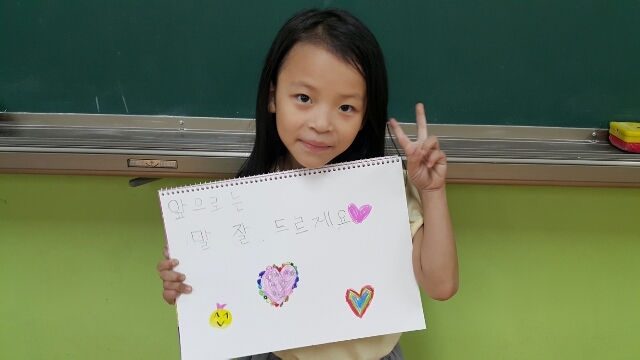 앞으로는
말 잘 드르게요